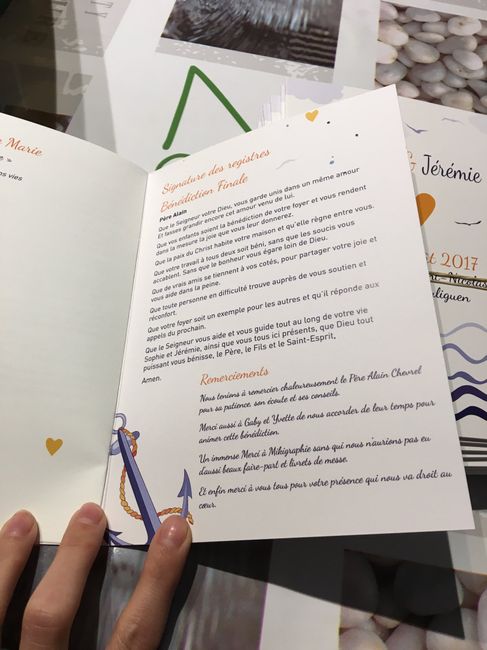 e Marie
e. »
os vies
Signature des registres
Bénédiction Finale
Père Alain
Que le Seigneur votre Dieu, vous garde unis dans un même amour
Et fasses grandir encore cet amour venu de lui.
Que vos enfants soient la bénédiction de votre foyer et vous rendent
dans la mesure la joie que vous leur donnerez.
Que la paix du Christ habite votre maison et qu'elle règne entre vous.
Que votre travail à tous deux soit béni, sans que les soucis vous
accablent. Sans que le bonheur vous égare loin de Dieu.
Que de vrais amis se tiennent à vos cotés, pour partager votre joie et
vous aide dans la peine.
Que toute personne en difficulté trouve auprès de vous soutien et
réconfort.
Que votre foyer soit un exemple pour les autres et qu'il réponde aux
appels du prochain.
Que le Seigneur vous aide et vous guide tout au long de votre vie
Sophie et Jérémie, ainsi que vous tous ici présents, que Dieu tout
puissant vous bénisse, le Père, le Fils et le Saint-Esprit,
Amen.
Remerciements
Nous tenions à remercier chaleureusement le Père Alain Chevrel
pour sa patience, son écoute et ses conseils.
Merci aussi à Gaby et Yvette de nous accorder de leur temps pour
animer cette bénédiction.
Un immense Merci à Mikigraphie sans qui nous n'aurions pas eu
d'aussi beaux faire-part et livrets de messe.
Et enfin merci à vous tous pour votre présence qui nous va droit au
cœur.
& Jérémie
t 2017
Nicolas
tiguen